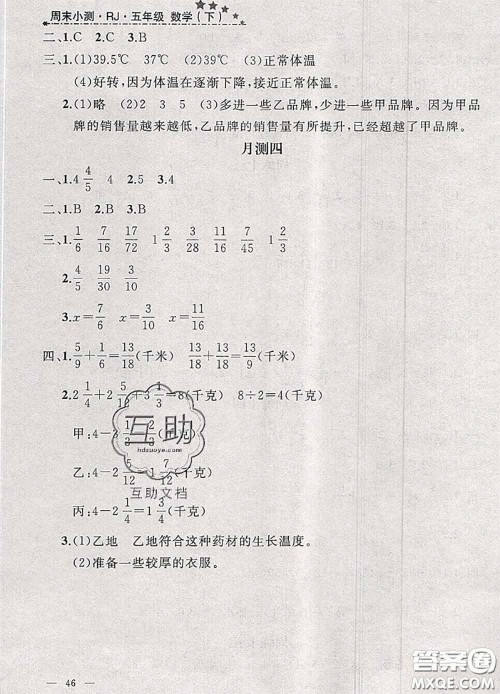 周末小测·RJ·五年级 数学(下)
二、1.C 2.C 3.B
三、1.(1)39.5℃ 37℃ (2)37℃ (3)正常体温
(4)好转，因为体温在逐渐下降，接近正常体温。
2.(1)略 (2)2 3 5 (3)多进一些乙品牌、少进一些甲品牌。因为甲品
牌的销售量越来越低，乙品牌的销售量有所提升，已经超越了甲品牌。
月测四
一、1.4/5 4 2.25 3.4
二、1.B 2.B 3.B
三、1.1/6 7/16 17/72 1 2/3 1/6 1/10 1 2/3
2.4/5 19/30 3/10
3.x=7/6 x=3/10 x=9/10
四、1.5/9+1/6=13/18(千米) 13/18+5/9=
2.2 1/4+2 5/12+3 1/3=8(千克) 8÷2=4(千克)
甲:4-3 1/3=2/3(千克)
乙:4-2 5/12=1 7/12(千克)
丙:4-2 1/4=1 3/4(千克)
3.(1)乙地 乙地符合这种药材的生长温度。
(2)准备一些较厚的衣服。
互助
hdzuoye.com
互助文档
46
答案圈
MXQE.COM